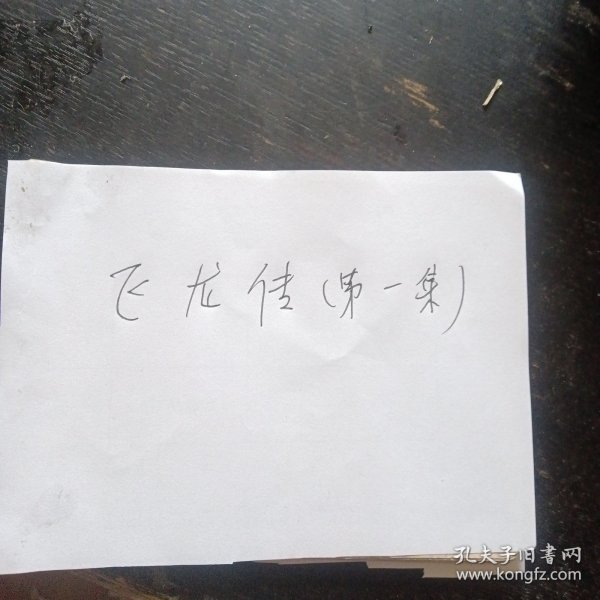 飞龙传(第一集)
孔夫子旧書网
www.kongfz.com